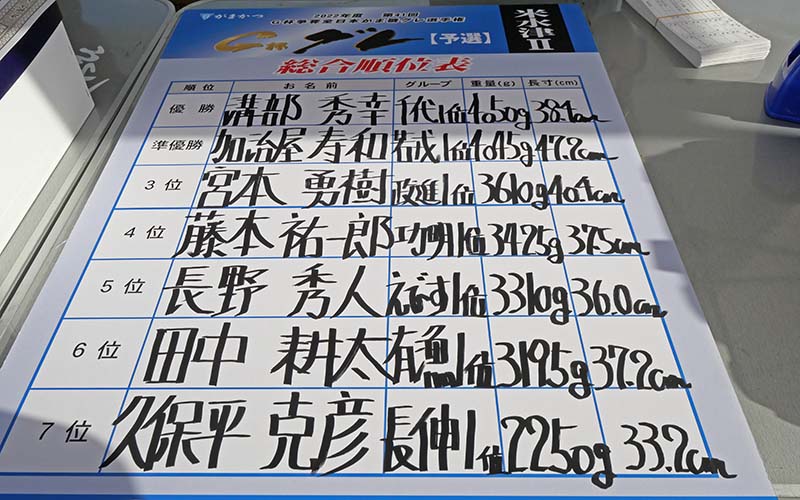 がまかつ
2022年度 第41回
G杯争奪全日本がま磯グレ選手権
米水津Ⅱ
G杯 グレ 【予選】
総合順位表
順位 お名前 グループ 重量(g) 長寸(cm)
優勝 溝部 秀幸 千代1位 4050g 38.1cm
準優勝 加治屋 寿和 若戎1位 4045g 47.2cm
3位 宮本 勇樹 政進1位 3610g 40.4cm
4位 藤本 祐一郎 功明1位 3425g 37.5cm
5位 長野 秀人 えびす1位 3310g 36.0cm
6位 田中 耕太 1位 3195g 37.2cm
7位 久保平 克彦 長伸1位 2250g 33.2cm